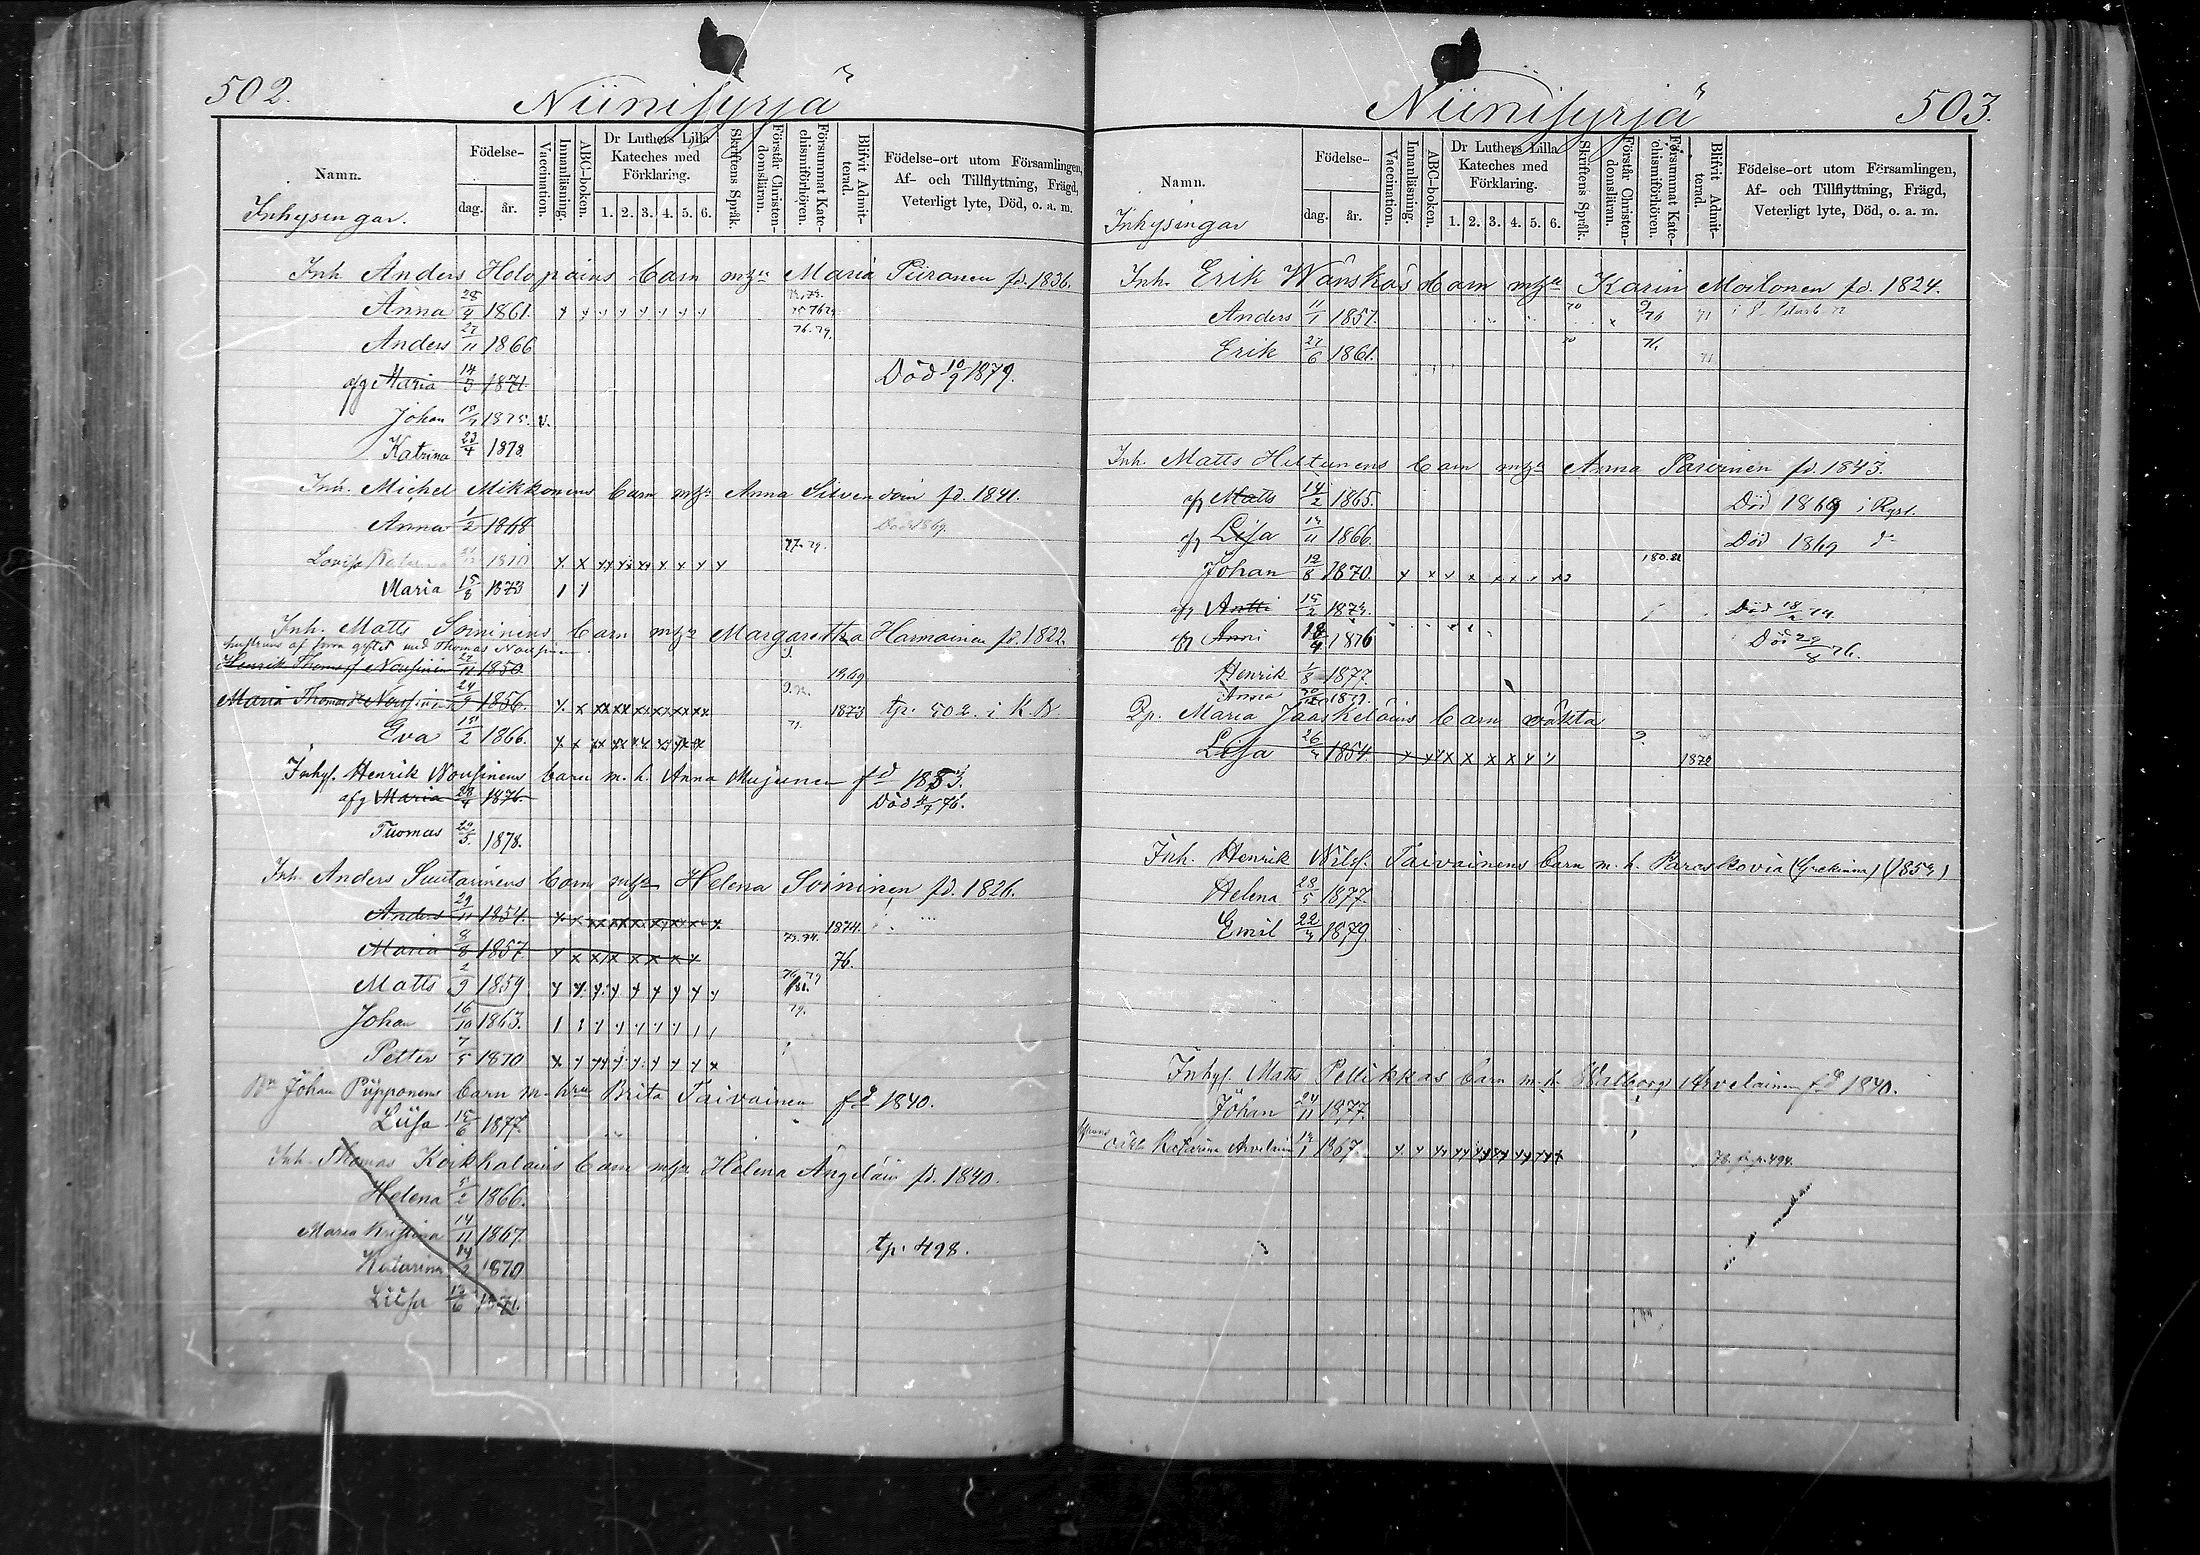 502.
Niinisyrjä
Namn.
Inhysingar.
Födelse-
dag. år.
Vaccination.
Innanläsning.
ABC-boken.
Dr Luthers Lilla Kateches med Förklaring.
1. 2. 3. 4. 5. 6.
Skriftens Språk.
Förstår Christendomsläran.
Försummat Katechismiförhören.
Blifvit Admitterad.
Födelse-ort utom Församlingen, Af- och Tillflyttning, Frägd, Veterligt lyte, Död, o. a. m.
Inh. Anders Holopains barn m hu Maria Piiranen fd. 1836.
Anna 28/4 1861.
Anders 27/11 1866
afg Maria 14/3 1871 Död 10/9 1879.
Johan 1875. v.
Katrina 23/4 1878.
Inh. Michel Mikkonens barn m hu Anna Silvendoin fd. 1841.
Anna 1/2 1868. Död 1869.
Lovisa Katarina 1870 77. 79.
Maria 15/8 1873
Inh. Matts Soininens barn m hu Margaretha Harmainen fd. 1822.
Hustruns af förra giftet med Thomas Nousiain
Henrik Thomasf Nousinin 22/11 1850 1869
Maria Thomasdr Nousinin 24/9 1856. 1873 tp. 502. i K.B.
Eva 15/2 1866. 79.
Inhys. Henrik Nousinens barn m. h. Anna Mujunen fd 1853.
afg Maria 28/4 1876. Död 4/7 76.
Tuomas 20/3 1878.
Inh. Anders Suutarinens barn m hu Helena Soininen fd. 1826.
Anders 29/11 1854. 1874.
Maria 8/8 1857 73. 74. 76.
Matts 2/9 1859 76 79 /81.
Johan 16/10 1863. 79.
Petter 7/5 1870
Johan Püpponens barn m. hru Brita Taivainen fd 1840.
Liisa 15/6 1877.
Inh. Thomas Kerkkolains barn m hu Helena Ängeläin fd. 1840.
Helena 5/2 1866.
Maria Kristina 14/11 1867.
tp. 498.
Katarina 14/2 1870
Liisa 13/6 1871.
503.
Niinisyrjä
Namn.
Inhysingar
Födelse-
dag. år.
Vaccination.
Innanläsning.
ABC-boken.
Dr Luthers Lilla Kateches med Förklaring.
1. 2. 3. 4. 5. 6.
Skriftens Språk.
Förstår Christendomsläran.
Försummat Katechismiförhören.
Blifvit Admitterad.
Födelse-ort utom Församlingen, Af- och Tillflyttning, Frägd, Veterligt lyte, Död, o. a. m.
Inh. Erik Wänskäs barn m hu Karin Mo Lonen fd. 1824.
Anders 11/1 1857. 70 71
Erik 27/6 1861. 70 71
Inh. Matts Hiltunens barn m hu Anna Parvinen fd. 1843.
afg Matts 14/2 1865. Död 1869 i Ryssl.
afg Lisa 11 1866. Död 1869 do
Johan 12/8 1870.
afg Antti 15/2 1873. Död 18/2 74.
afg Anni 18/4 1876 Död 29/8 76.
Henrik 1/8 1877.
Anna 1879.
Dp. Maria Jääskeläins barn oäkta
Lisa 26/4 1854 1872
Inh. Henrik Nilsf. Taivainens barn m. h. Paraskovia (Grekinna) (1859)
Helena 28/5 1877.
Emil 22/4 1879.
Inhys. Matts Pellikkas barn m. h. Walborg Arvelainen fd 1840.
Johan 24/11 1877.
oäkta Katarina Arvelainen 1867. 78. fr. p. 494.